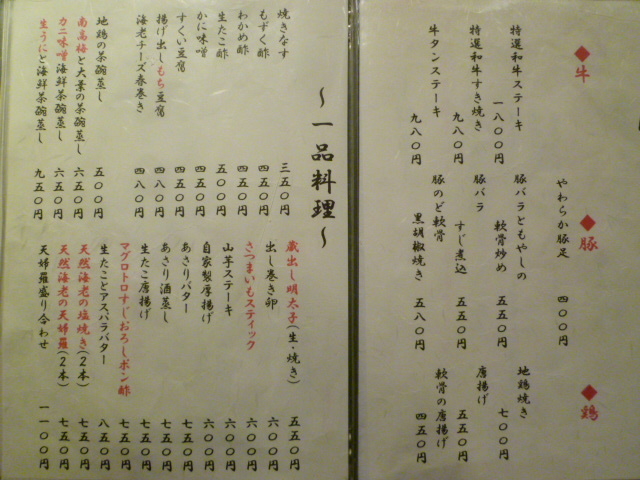 ◆牛
特選和牛ステーキ 一八〇〇円
特選和牛すき焼き 九八〇円
牛タンステーキ 九八〇円
◆豚
やわらか豚足 四〇〇円
豚バラともやしの
軟骨炒め 五五〇円
豚バラ
すじ煮込 五五〇円
豚のど軟骨
黒胡椒焼き 五八〇円
◆鶏
地鶏焼き 七〇〇円
唐揚げ 五五〇円
軟骨の唐揚げ 四五〇円
〜一品料理〜
焼きなす 三五〇円
もずく酢 四五〇円
わかめ酢 四五〇円
生たこ酢 五〇〇円
かに味噌 四五〇円
すくい豆腐 四五〇円
揚げ出しもち豆腐 四八〇円
海老チーズ春巻き 四八〇円
地鶏の茶碗蒸し 五〇〇円
南高梅と大葉の茶碗蒸し 六五〇円
カニ味噌海鮮茶碗蒸し 六五〇円
生うにと海鮮茶碗蒸し 九五〇円
蔵出し明太子(生・焼き) 五五〇円
出し巻き卵 六〇〇円
さつまいもスティック 六〇〇円
山芋ステーキ 六〇〇円
自家製厚揚げ 六〇〇円
あさりバター 七五〇円
あさり酒蒸し 七五〇円
生たこ唐揚げ 七五〇円
マグロトロすじおろしポン酢 七五〇円
生たことアスパラバター 八五〇円
天然海老の塩焼き(2本) 七五〇円
天然海老の天婦羅(2本) 七五〇円
天婦羅盛り合わせ 一一〇〇円